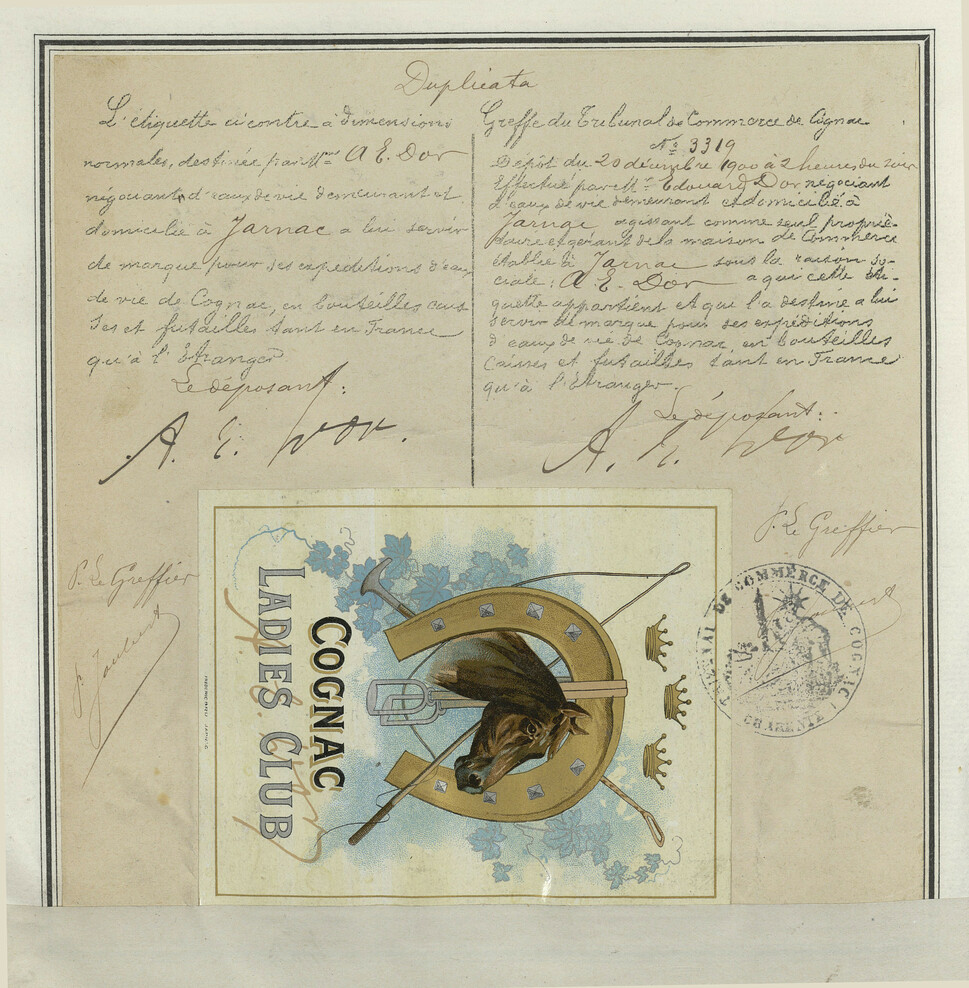 Duplicata
L'étiquette ci contre à dimensions
normales, destinée par Mr A E. Dor
négociant d'eaux de vie demeurant et
domicilié à Jarnac a lui servir
de marque pour ses expeditions d'eaux
de vie de Cognac, en bouteilles cais
ses et futailles tant en France
qu'à l'Etranger
Le déposant:
A. E. Dor.
P. Le Greffier
Greffe du Tribunal de Commerce de Cognac
No 3319
Dépôt du 20 décembre 1900 à 2 heures du soir
Effectué par Mr Edouard Dor négociant
d'eaux de vie demeurant et domicilié à
Jarnac agissant comme seul proprié-
taire et gérant de la maison de Commerce
établie à Jarnac sous la raison so-
ciale: A E. Dor a qui cette éti-
quette appartient et qui l'a destinée a lui
servir de marque pour ses expéditions
d'eaux de vie de Cognac en bouteilles
Caisses et futailles tant en France
qu'à l'Etranger.
Le déposant:
A. E. Dor
P. Le Greffier
TRIBUNAL DE COMMERCE DE COGNAC
CHARENTE
COGNAC
LADIES CLUB
A. E. Dor